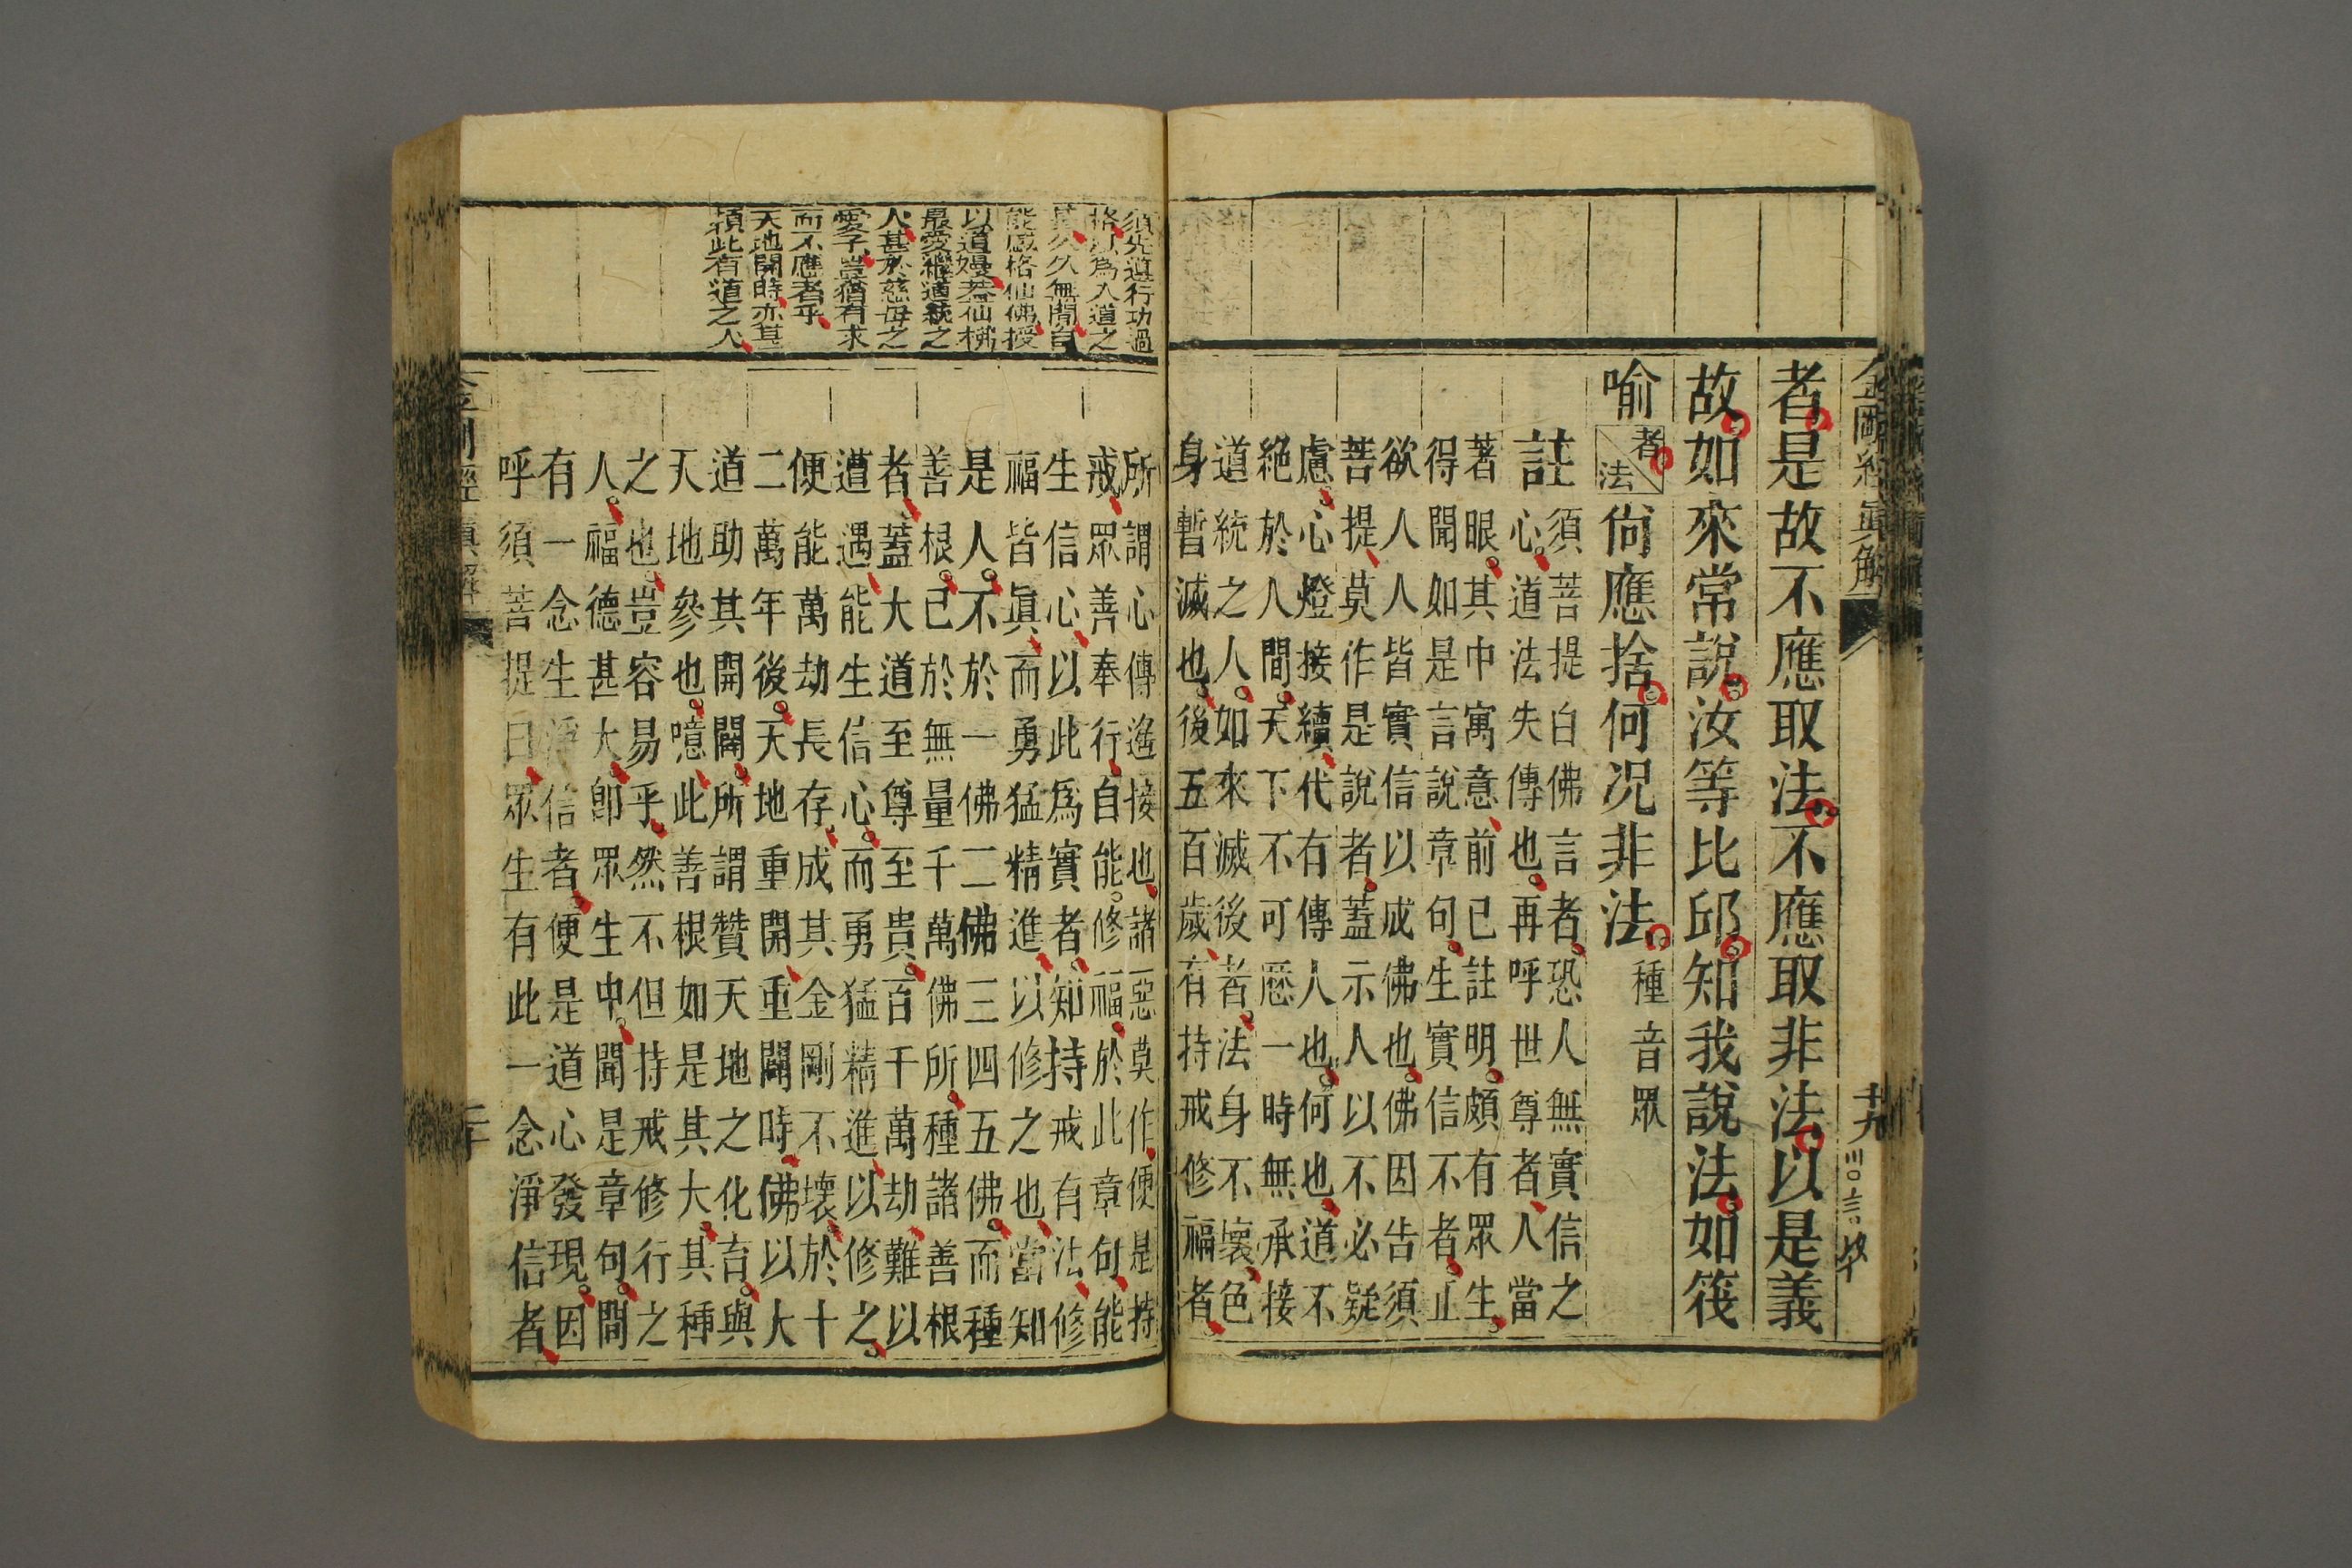 金剛經真解
十九
者是故不應取法不應取非法以是義
故如來常說汝等比邱知我說法如筏
喻者法尙應捨何况非法種音眾
註須菩提白佛言者恐人無實信之
心道法失傳也再呼世尊者人當
著眼其中寓意前已註明頗有眾生
得聞如是言說章句生實信不者止
欲人人皆實信以成佛也佛因告須
菩提莫作是說者蓋示人以不必疑
慮心燈接續代有傳人也何也道不
絕於人間天下不可歷一時無承接
道統之人如來滅後者法身不壞色
身暫滅也後五百歲有持戒修福者
須先遵行功過
格以為入道之
久久無間自
能感格仙佛授
以道嫚蓋仙佛
最愛繼道統之
人甚於慈母之
愛子豈猶有求
而不應者乎
天地開時亦其
須此有道之人
所謂心傳遙接也諸惡莫作便是持
戒眾善奉行自能修福於此章句能
生信心以此為實者知持戒有法修
福皆真而勇猛精進以修之也當知
是人不於一佛二佛三四五佛而種
善根已於無量千萬佛所種諸善根
者蓋大道至尊至貴百千萬劫難以
遭遇能生信心而勇猛精進以修之
便能萬劫長存成其金剛不壞於十
二萬年後天地重開重闢時佛以大
道助其開闢所謂贊天地之化育與
天地參也噫此善根如是其大其種
之也豈容易乎然不但持戒修行之
人福德甚大卽眾生中聞是章句間
有一念生淨信者便是道心發現因
呼須菩提曰眾生有此一念淨信者
金剛經真解
二十